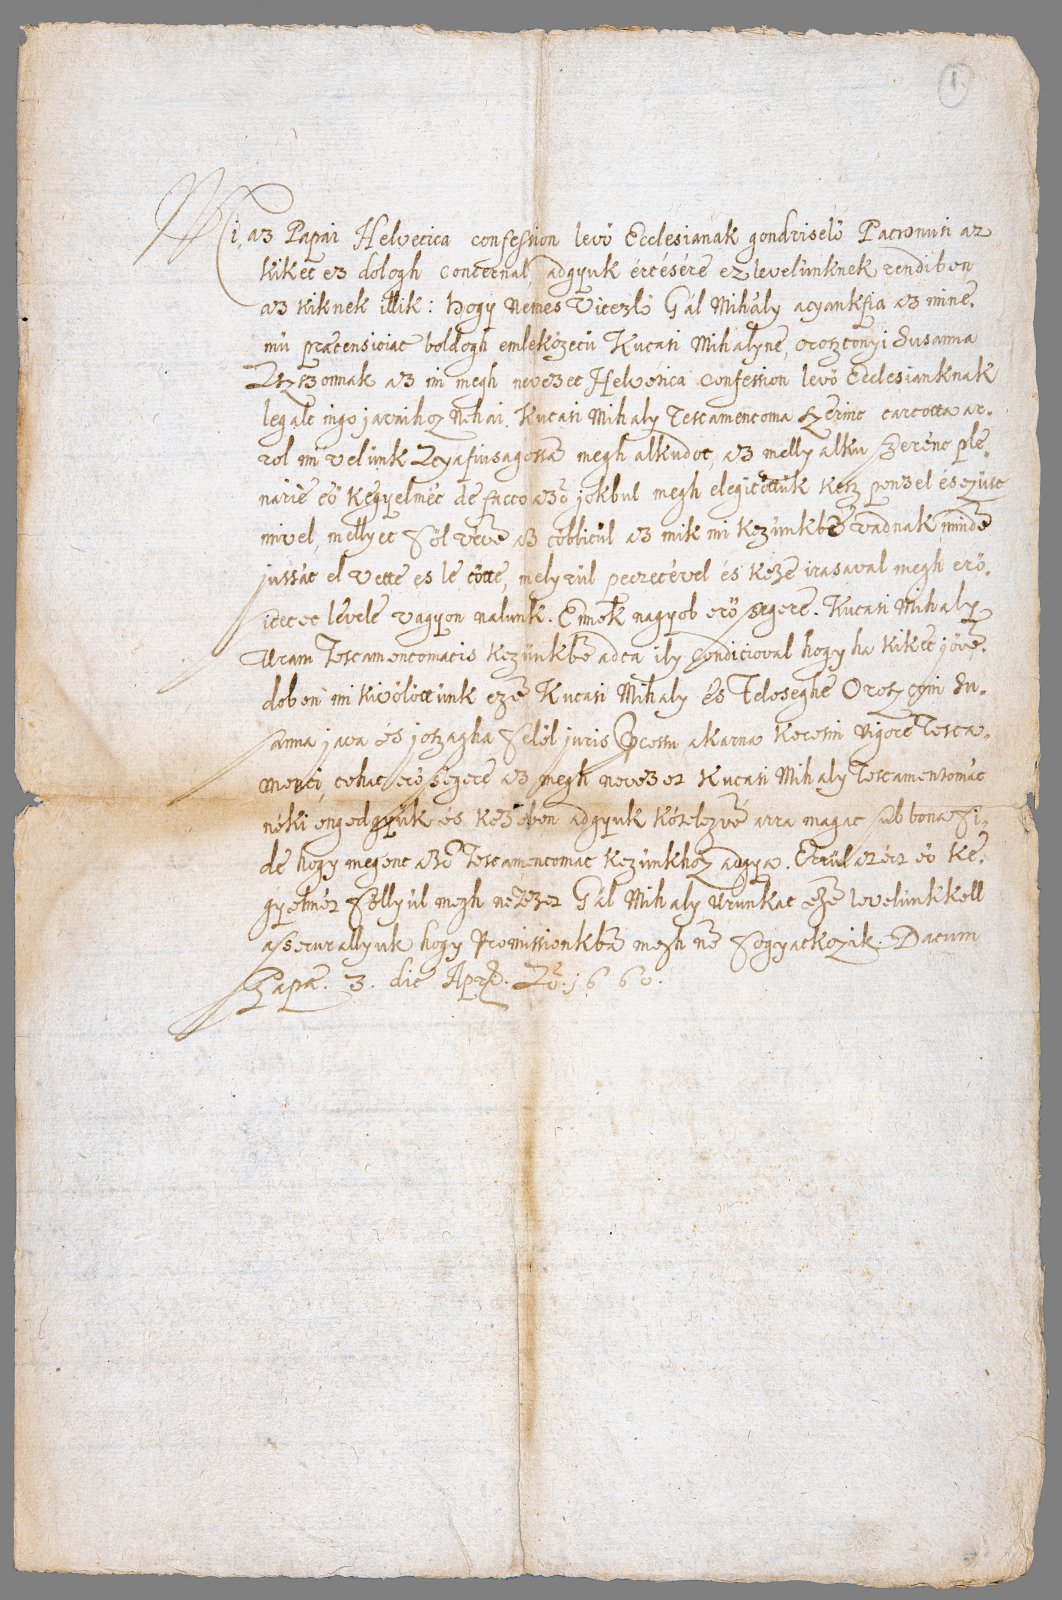 1
Mi az Papai Helvetica confession levö Ecclesianak gondviselö Patronusi az
kiket ez dologh concernal, adgyuk értésére ez levelünknek rendiben
az kiknek illik: hogy Nemes Vitezlö Gál Mihály atyankfia az mine.
mü praetensioiat boldogh emleközetü Kutasi Mihalyne, Orosztonyi Susanna
Aszszonnak az mi megh nevezet Helvetica confession levö Ecclesianknak
legalt ingo javaihoz Nehai Kutasi Mihaly Testamentoma szerint tartotta ar-
rol mi velünk Atyafiusagossa megh alkudot, az melly alku szerént ple-
narie eö kegyelmét de facto azö jokbul megh elegitöttük kesz penzel és ezüst
mivel, mellyet föl vevē az többitül az mik mi kezünkbē vadnak mindē
jussát el vette es le tötte, melyrül peczetével és keze irasaval megh erö.
sitetet levele vagyon nalunk. Ennek nagyob erössegere. Kutasi Mihaly
Uram Testamentomatis kezünkbē adta ily conditioval hogy ha kiket jövē.
döben mi kivölöttünk ezē Kutasi Mihaly és Feleseghe Orosztoni Su-
sanna java és joszagha felöl juris Processu akarna keresni vigore Testa-
menti, tehat erössegere az megh nevezet Kutasi Mihaly Testamentomát
néki engedgyük és kezében adgyuk kötelezvē arra magat sub bona fi-
de hogy megent azō Testamentomat kezünkhöz adgya. Errül azért eö ke-
gyelmét föllyül megh nevezet Gál Mihaly Urunkat ezē levelünkkell
assecurallyuk hogy Promissionkbā megh nē fogyatkozik. Datum
Papae. 3. die Apr. Ao. 1660.